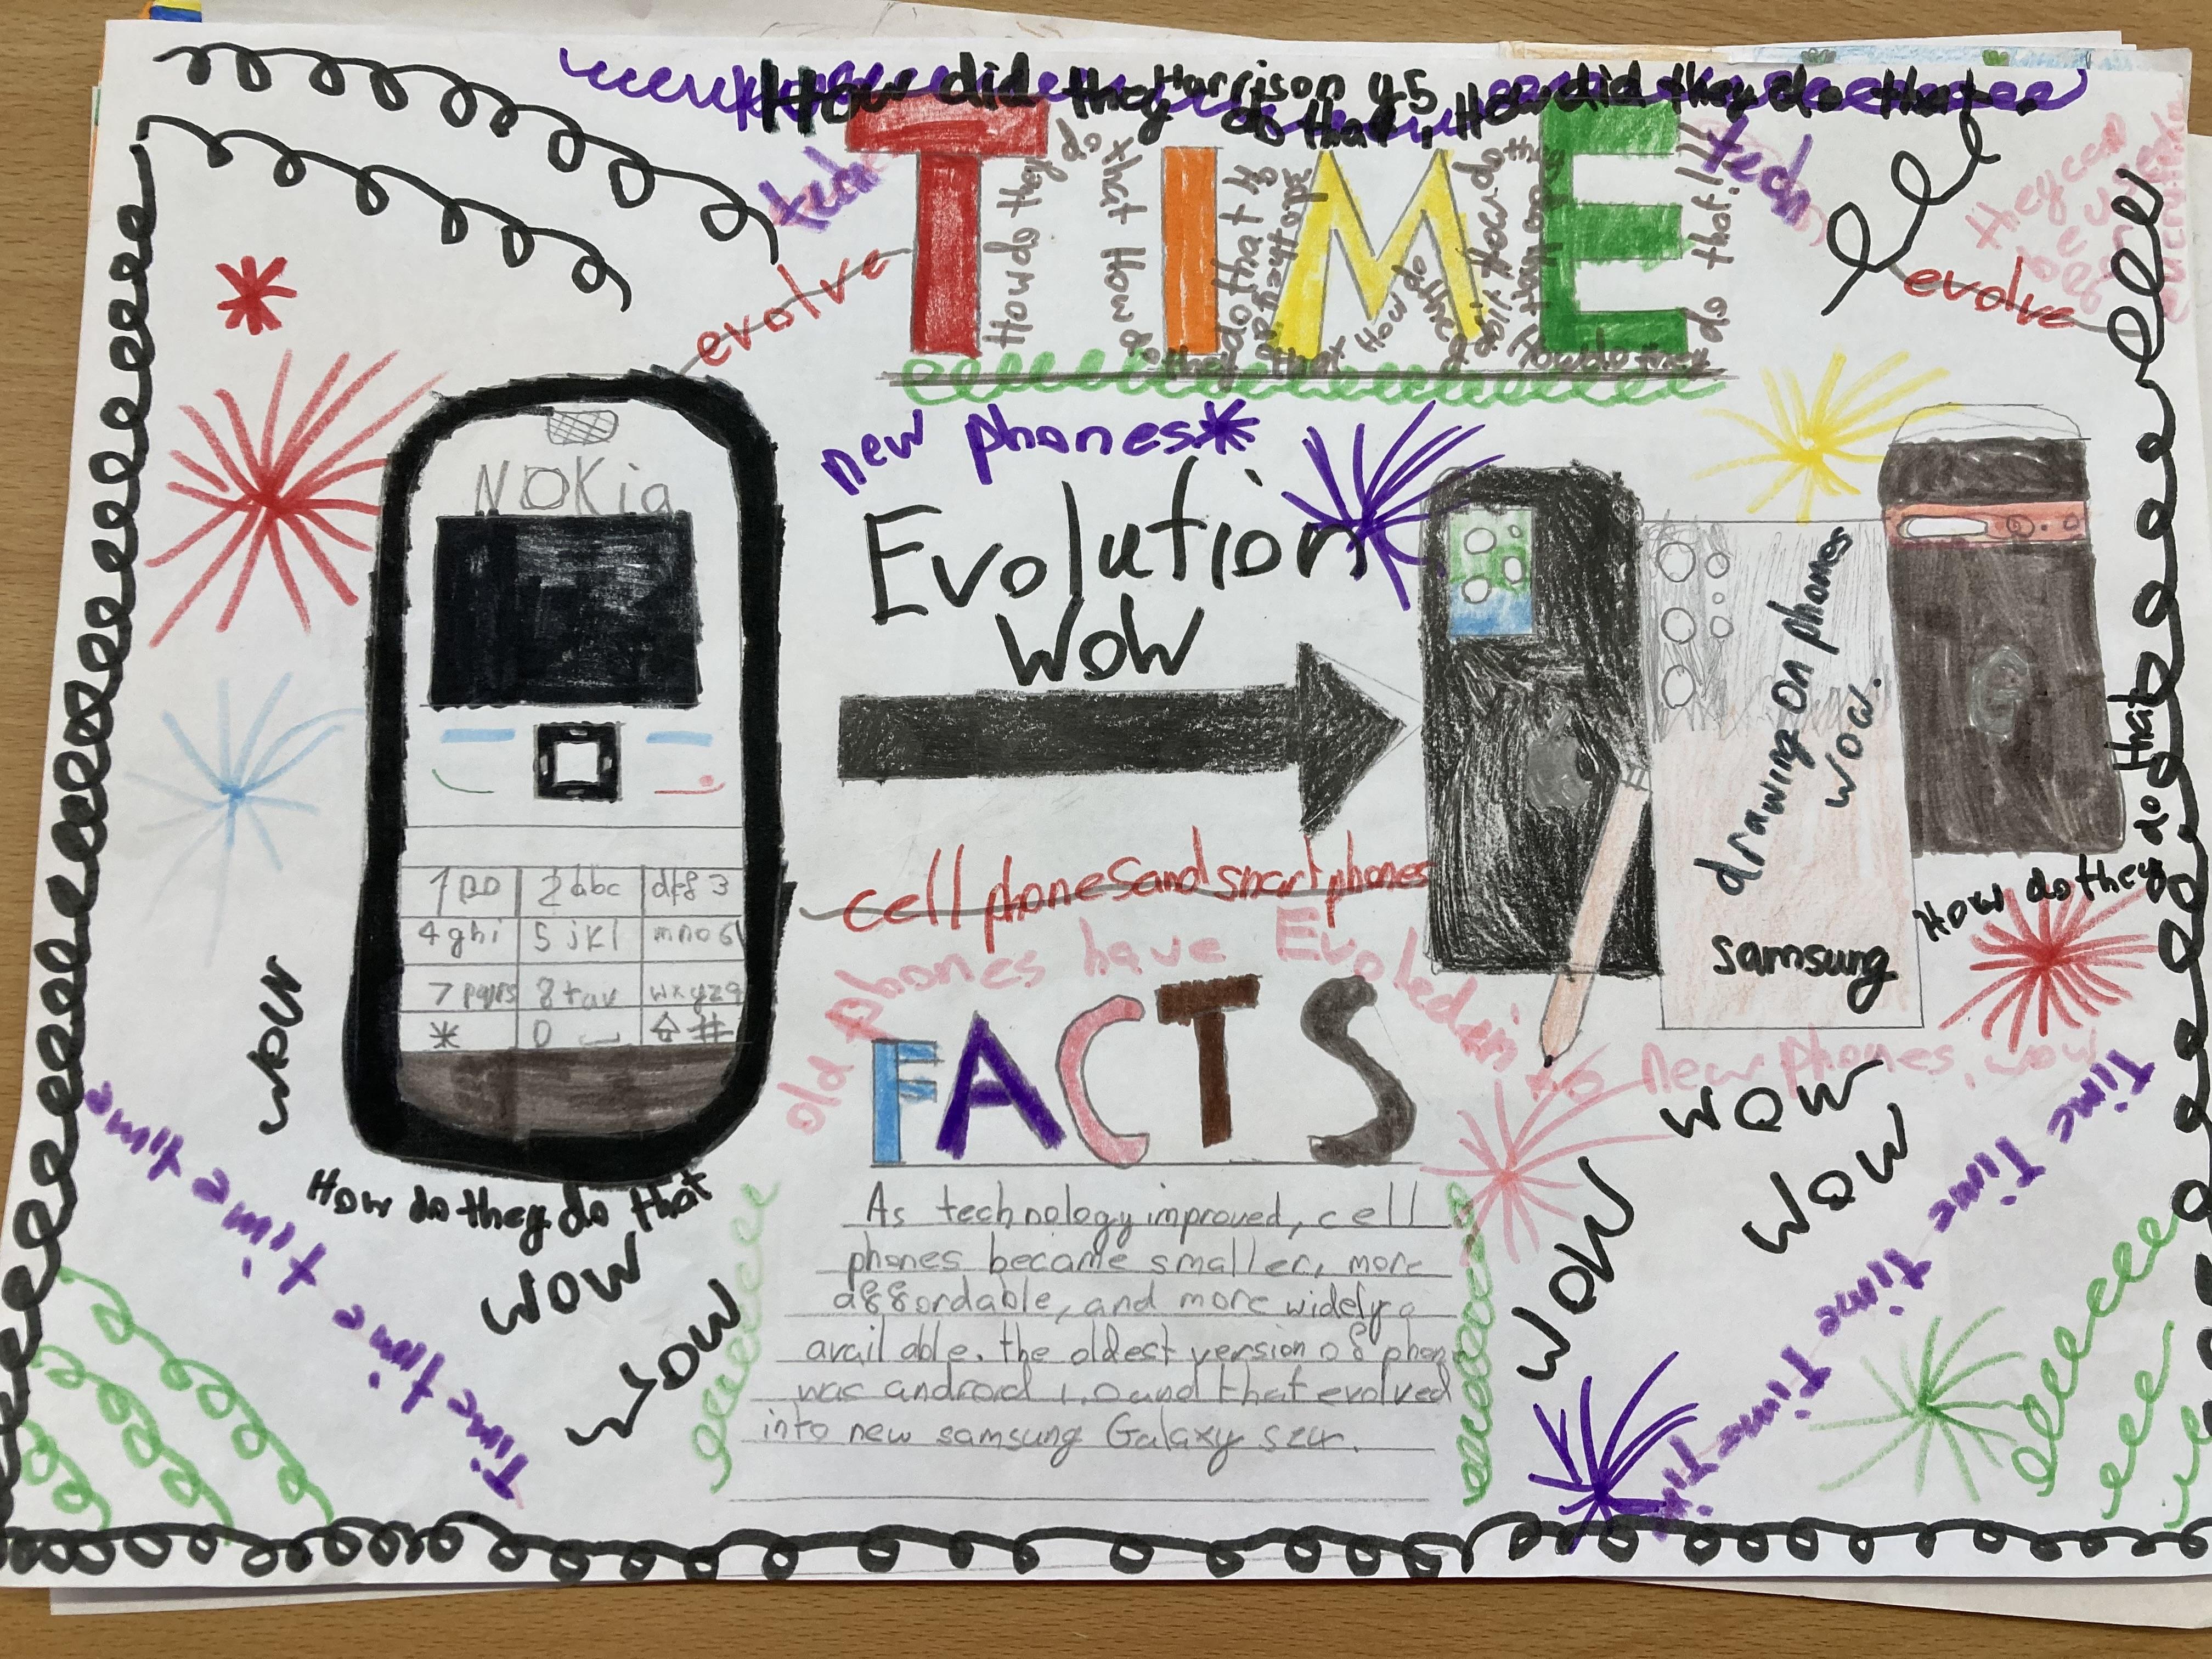 How did they do that, How did they do that.
Harrison y5
tech
TIME
tech
evolve
evolve
How do they do that
How do they do that
How do they do that
they can be used
new phones
Evolution
WOW
NOKia
drawing on phones
wow.
Samsung
cell phones and smart phones
old phones have Evoled in to new phones, wow
How do they do that
1 2 abc def 3
4 ghi 5 jkl mno 6
7 pqrs 8 tuv wxyz 9
* 0 #
FACTS
As technology improved, cell
phones became smaller, more
affordable, and more widely
available. the oldest version of phon
was android 1.0 and that evolved
into new samsung Galaxy S24.
wow
How do they do that
wow
wow
wow
wow
wow
time time time time time time Time
Time Time Time Time Time Time Time